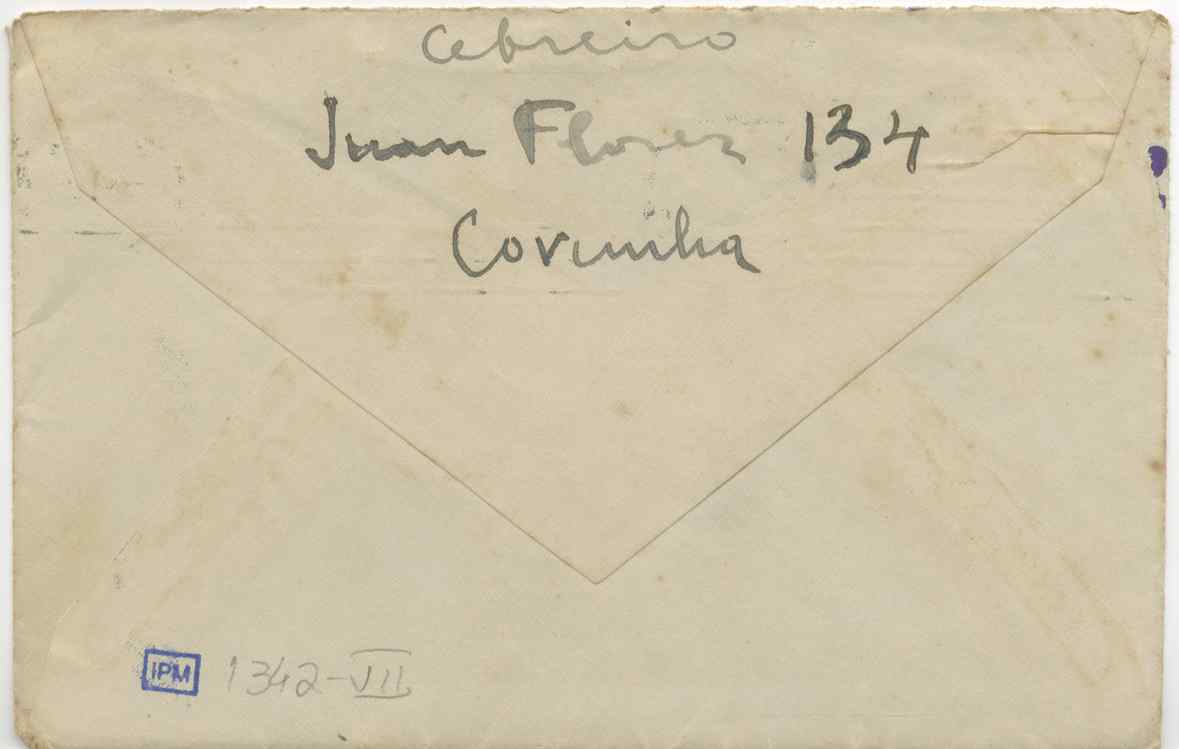 Cebreiro
Juan Florez 134
Corunha
IPM 1342-VII